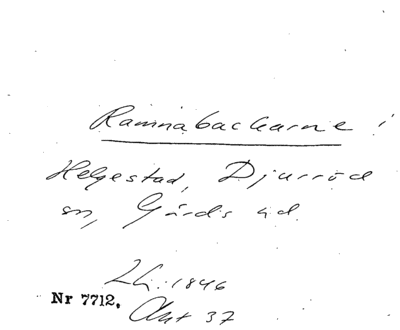 Ramnabackarne i
Helgestad, Djurröd
sn, Gärds hd.
Lh. 1846
Nr 7712. Akt 37